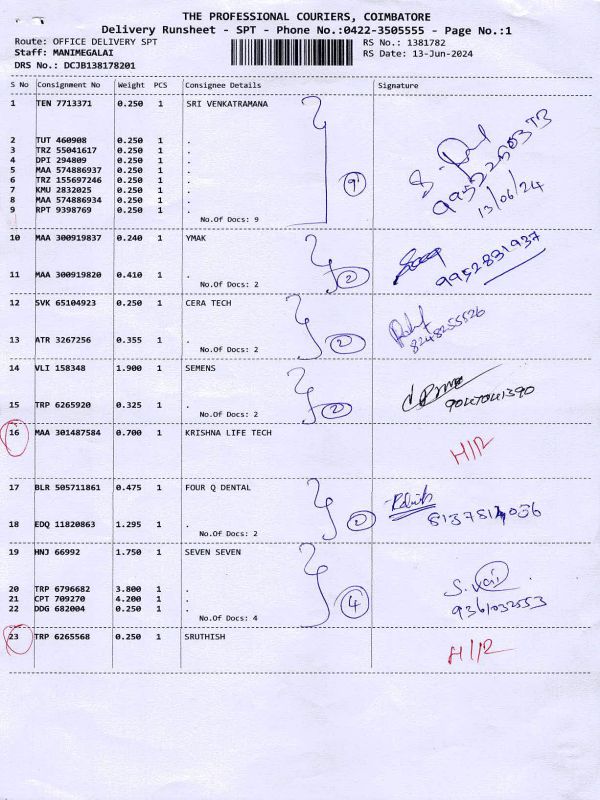 THE PROFESSIONAL COURIERS, COIMBATORE
Delivery Runsheet - SPT - Phone No.:0422-3505555 - Page No.:1
Route: OFFICE DELIVERY SPT RS No.: 1381782
Staff: MANIMEGALAI RS Date: 13-Jun-2024
DRS No.: DCJB138178201
S No Consignment No Weight PCS Consignee Details Signature
1 TEN 7713371 0.250 1 SRI VENKATRAMANA
2 TUT 460908 0.250 1 .
3 TRZ 55041617 0.250 1 .
4 DPI 294809 0.250 1 .
5 MAA 574886937 0.250 1 .
6 TRZ 155697246 0.250 1 .
7 KMU 2832025 0.250 1 .
8 MAA 574886934 0.250 1 .
9 RPT 9398769 0.250 1 .
No.Of Docs: 9
9
13/06/24
10 MAA 300919837 0.240 1 YMAK
11 MAA 300919820 0.410 1 .
No.Of Docs: 2
2
9952831937
12 SVK 65104923 0.250 1 CERA TECH
13 ATR 3267256 0.355 1 .
No.Of Docs: 2
2
8248255526
14 VLI 158348 1.900 1 SEMENS
15 TRP 6265920 0.325 1 .
No.Of Docs: 2
2
9047041390
16 MAA 301487584 0.700 1 KRISHNA LIFE TECH
17 BLR 505711861 0.475 1 FOUR Q DENTAL
18 EDQ 11820863 1.295 1 .
No.Of Docs: 2
2
19 HNJ 66992 1.750 1 SEVEN SEVEN
20 TRP 6796682 3.800 1 .
21 CPT 709270 4.200 1 .
22 DDG 682004 0.250 1 .
No.Of Docs: 4
4
9361032553
23 TRP 6265568 0.250 1 SRUTHISH